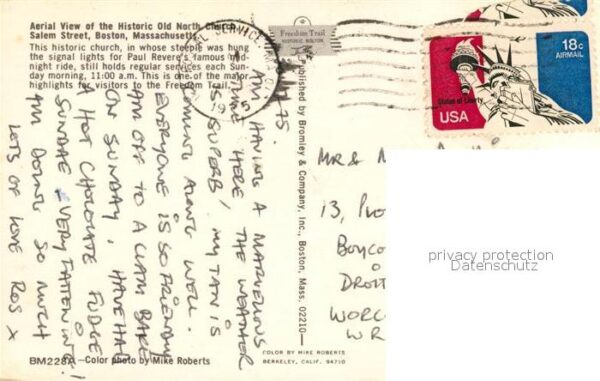 Aerial View of the Historic Old North Church
Salem Street, Boston, Massachusetts
This historic church, in whose steeple was hung
the signal lights for Paul Revere's famous mid-
night ride, still holds regular services each Sun-
day morning, 11:00 a.m. This is one of the major
highlights for visitors to the Freedom Trail.
75.
AM HAVING A MARVELLOUS
TIME HERE, THE WEATHER
IS SUPERB, MY TAN IS
COMING ALONG WELL.
EVERYONE IS SO FRIENDLY
AM OFF TO A CLAM BAKE
ON SUNDAY, HAVE HAD
HOT CHOCOLATE FUDGE
SUNDAE - VERY FATTENING!
AM DOING SO MUCH
LOTS OF LOVE ROS X
BM228A—Color photo by Mike Roberts
Published by Bromley & Company, Inc., Boston, Mass. 02210—
COLOR BY MIKE ROBERTS
BERKELEY, CALIF. 94710
Freedom Trail
HISTORIC BOSTON
SERVICE
1975
18c
AIRMAIL
Statue of Liberty
USA
MR &
13,
BOYCO
DROIT
WORC
WR
privacy protection
Datenschutz